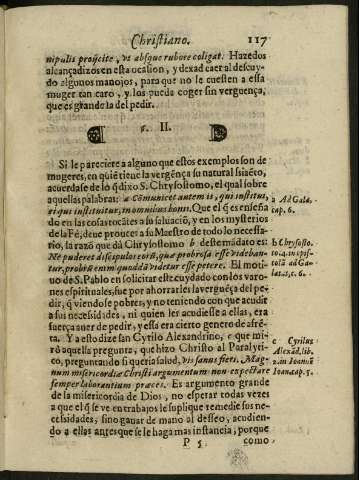 Christiano. 117
nipulis proijcite, vt absque rubore coligat. Hazedos
alcançadizos en esta ocasion, y dexad caer al descuy-
do algunos manojos, para que no le cuesten a essa
muger tan caro, y los pueda coger sin verguença,
que es grande la del pedir.
§. II.
Si le pareciere a alguno que estos exemplos son de
mugeres, en quiē tiene la vergēça su natural assiēto,
acuerdase de lo q̃ dixo S. Chrysostomo, el qual sobre
aquellas palabras: a Cōmunicet autem is, qui instituit,
ei qui instituitur, in omnibus bonis. Que el q̃ es enseña
do en las cosas tocātes a su saluaciō, y en los mysterios
de la Fè, deue prouees a su Maestro de todo lo necessa-
rio, la razō que dà Chrysostomo b deste mādato es:
Ne puderet discipulos eorū, quæ probrosa esse videban-
tur, probrū enim quoddā videtur esse petere. El moti-
uo de S. Pablo en solicitar este cuydado con los varo-
nes espirituales, fue por ahorrarles la vergēça del pe-
dir, q̃ viendose pobres, y no teniendo con que acudir
a sus necessidades, ni quien les acudiesse a ellas, era
fuerça auer de pedir, y essa era cierto genero de afrē-
ta. Y a esto dize san Cyrilo Alexandrino, c que mi-
rò aquella pregunta, que hizo Christo al Paralyti-
co, preguntando si queria salud, Vis sanus fieri. Mag-
num misericordiæ Christi argumentum non expectare
semper laborantium preces. Es argumento grande
de la misericordia de Dios, no esperar todas vezes
a que el q̃ se ve en trabajos le suplique remedie sus ne-
cessidades, sino ganar de mano al desseo, acudien-
do a ellas antes que se le haga instancia, porque
P 5 como
a Ad Gala.
cap. 6.
b Chrysosto.
c Cyrilus
Alexād. lib.
2. in Ioannū
Ioan. cap. 5.